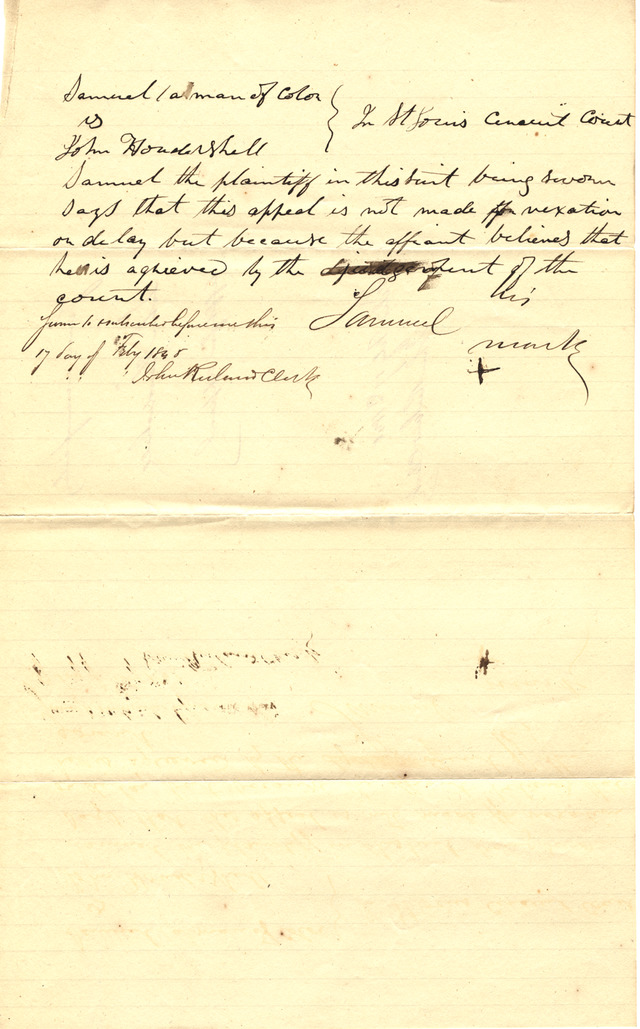 Samuel / a man of color
vs
In St Louis Circuit Court
John Houdershell
Samuel the plaintiff in this suit being sworn
says that this appeal is not made for vexation
or delay but because the affiant believes that
he is agrieved by the judgement of the
court.
his
Samuel
mark
+
Sworn to & subscribed before me this
17 day of Feby 1845
John Ruland Clerk